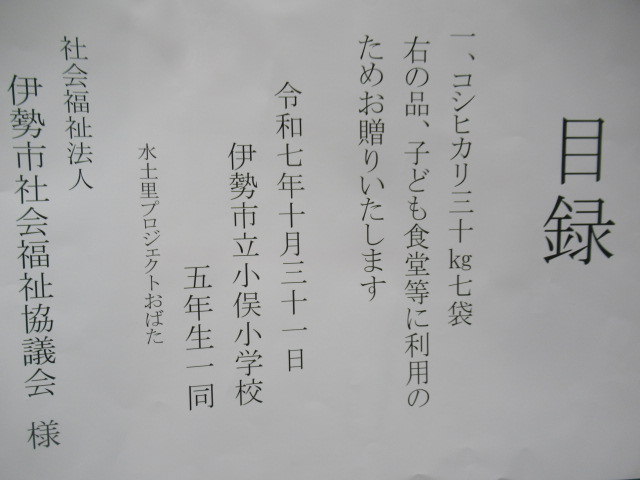 目録
一、コシヒカリ三十㎏七袋
右の品、子ども食堂等に利用の
ためお贈りいたします
令和七年十月三十一日
伊勢市立小俣小学校
五年生一同
水土里プロジェクトおばた
社会福祉法人
伊勢市社会福祉協議会 様